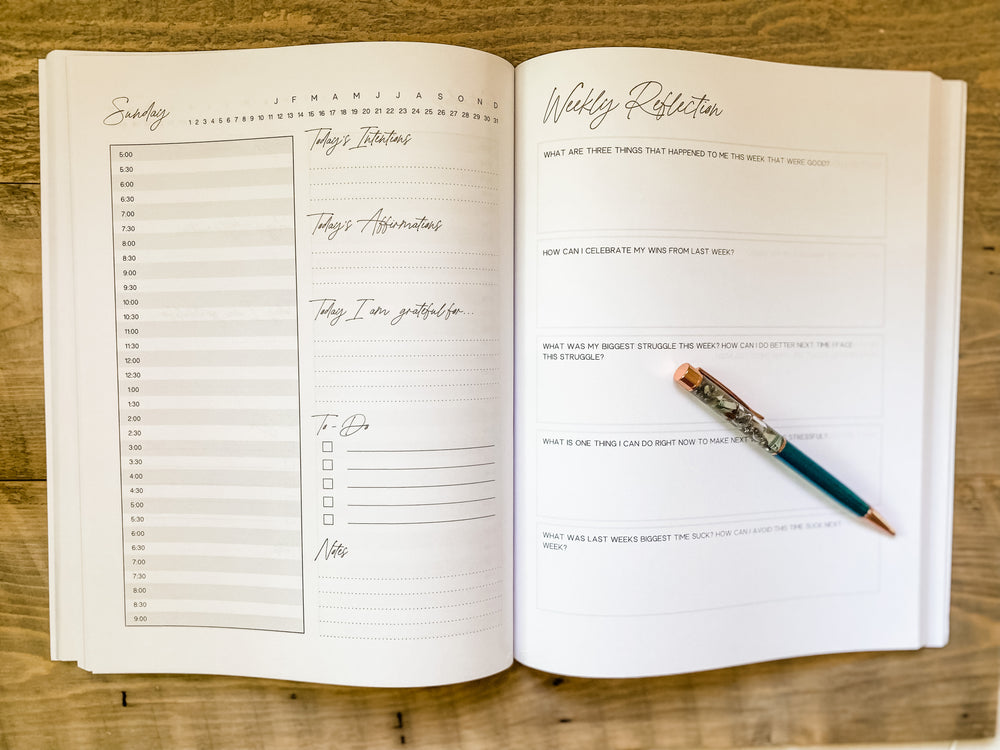 Sunday
J F M A M J J A S O N D
1 2 3 4 5 6 7 8 9 10 11 12 13 14 15 16 17 18 19 20 21 22 23 24 25 26 27 28 29 30 31
5:00
5:30
6:00
6:30
7:00
7:30
8:00
8:30
9:00
9:30
10:00
10:30
11:00
11:30
12:00
12:30
1:00
1:30
2:00
2:30
3:00
3:30
4:00
4:30
5:00
5:30
6:00
6:30
7:00
7:30
8:00
8:30
9:00
Today's Intentions
Today's Affirmations
Today I am grateful for...
To-Do
Notes
Weekly Reflection
WHAT ARE THREE THINGS THAT HAPPENED TO ME THIS WEEK THAT WERE GOOD?
HOW CAN I CELEBRATE MY WINS FROM LAST WEEK?
WHAT WAS MY BIGGEST STRUGGLE THIS WEEK? HOW CAN I DO BETTER NEXT TIME I FACE
THIS STRUGGLE?
WHAT IS ONE THING I CAN DO RIGHT NOW TO MAKE NEXT STRESSFUL?
WHAT WAS LAST WEEKS BIGGEST TIME SUCK? HOW CAN I AVOID THIS TIME SUCK NEXT
WEEK?